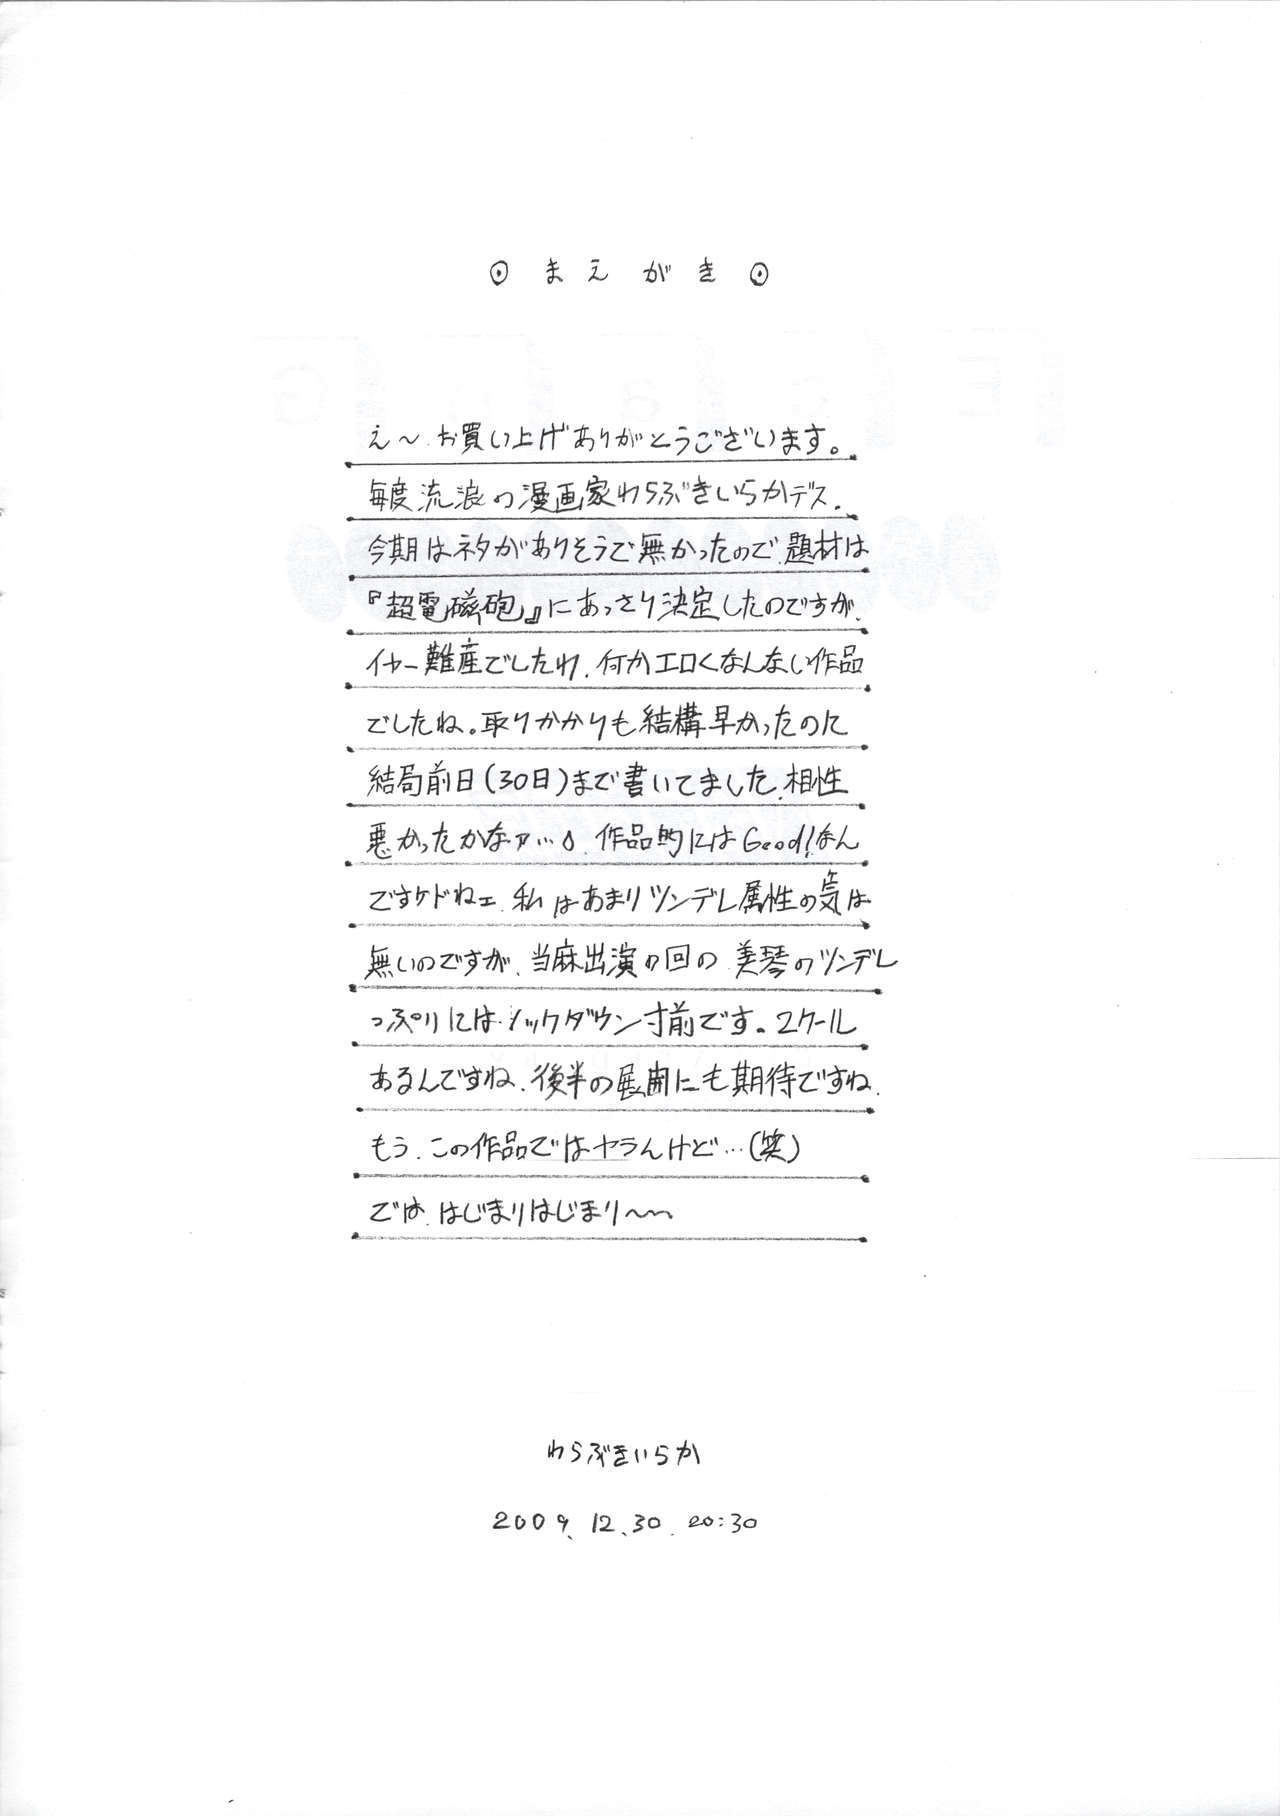 ⊙ まえがき ⊙
え〜お買い上げありがとうございます。
毎度流浪の漫画家わらぶきいらかデス.
今期はネタがありそうで無かったので、題材は
『超電磁砲』にあっさり決定したのですが、
イヤー難産でしたわ、何かエロくなんない作品
でしたね。取りかかりも結構早かったのに
結局前日(30日)まで書いてました、相性
悪かったかなァ… 作品的にはGood!なん
ですケドねェ、私はあまりツンデレ属性の気は
無いのですが、当麻出演の回の美琴のツンデレ
っぷりにはノックダウン寸前です。2クール
あるんですね、後半の展開にも期待ですね、
もう、この作品ではヤラんけど…(笑)
では、はじまりはじまり〜〜
わらぶきいらか
2009.12.30.20:30